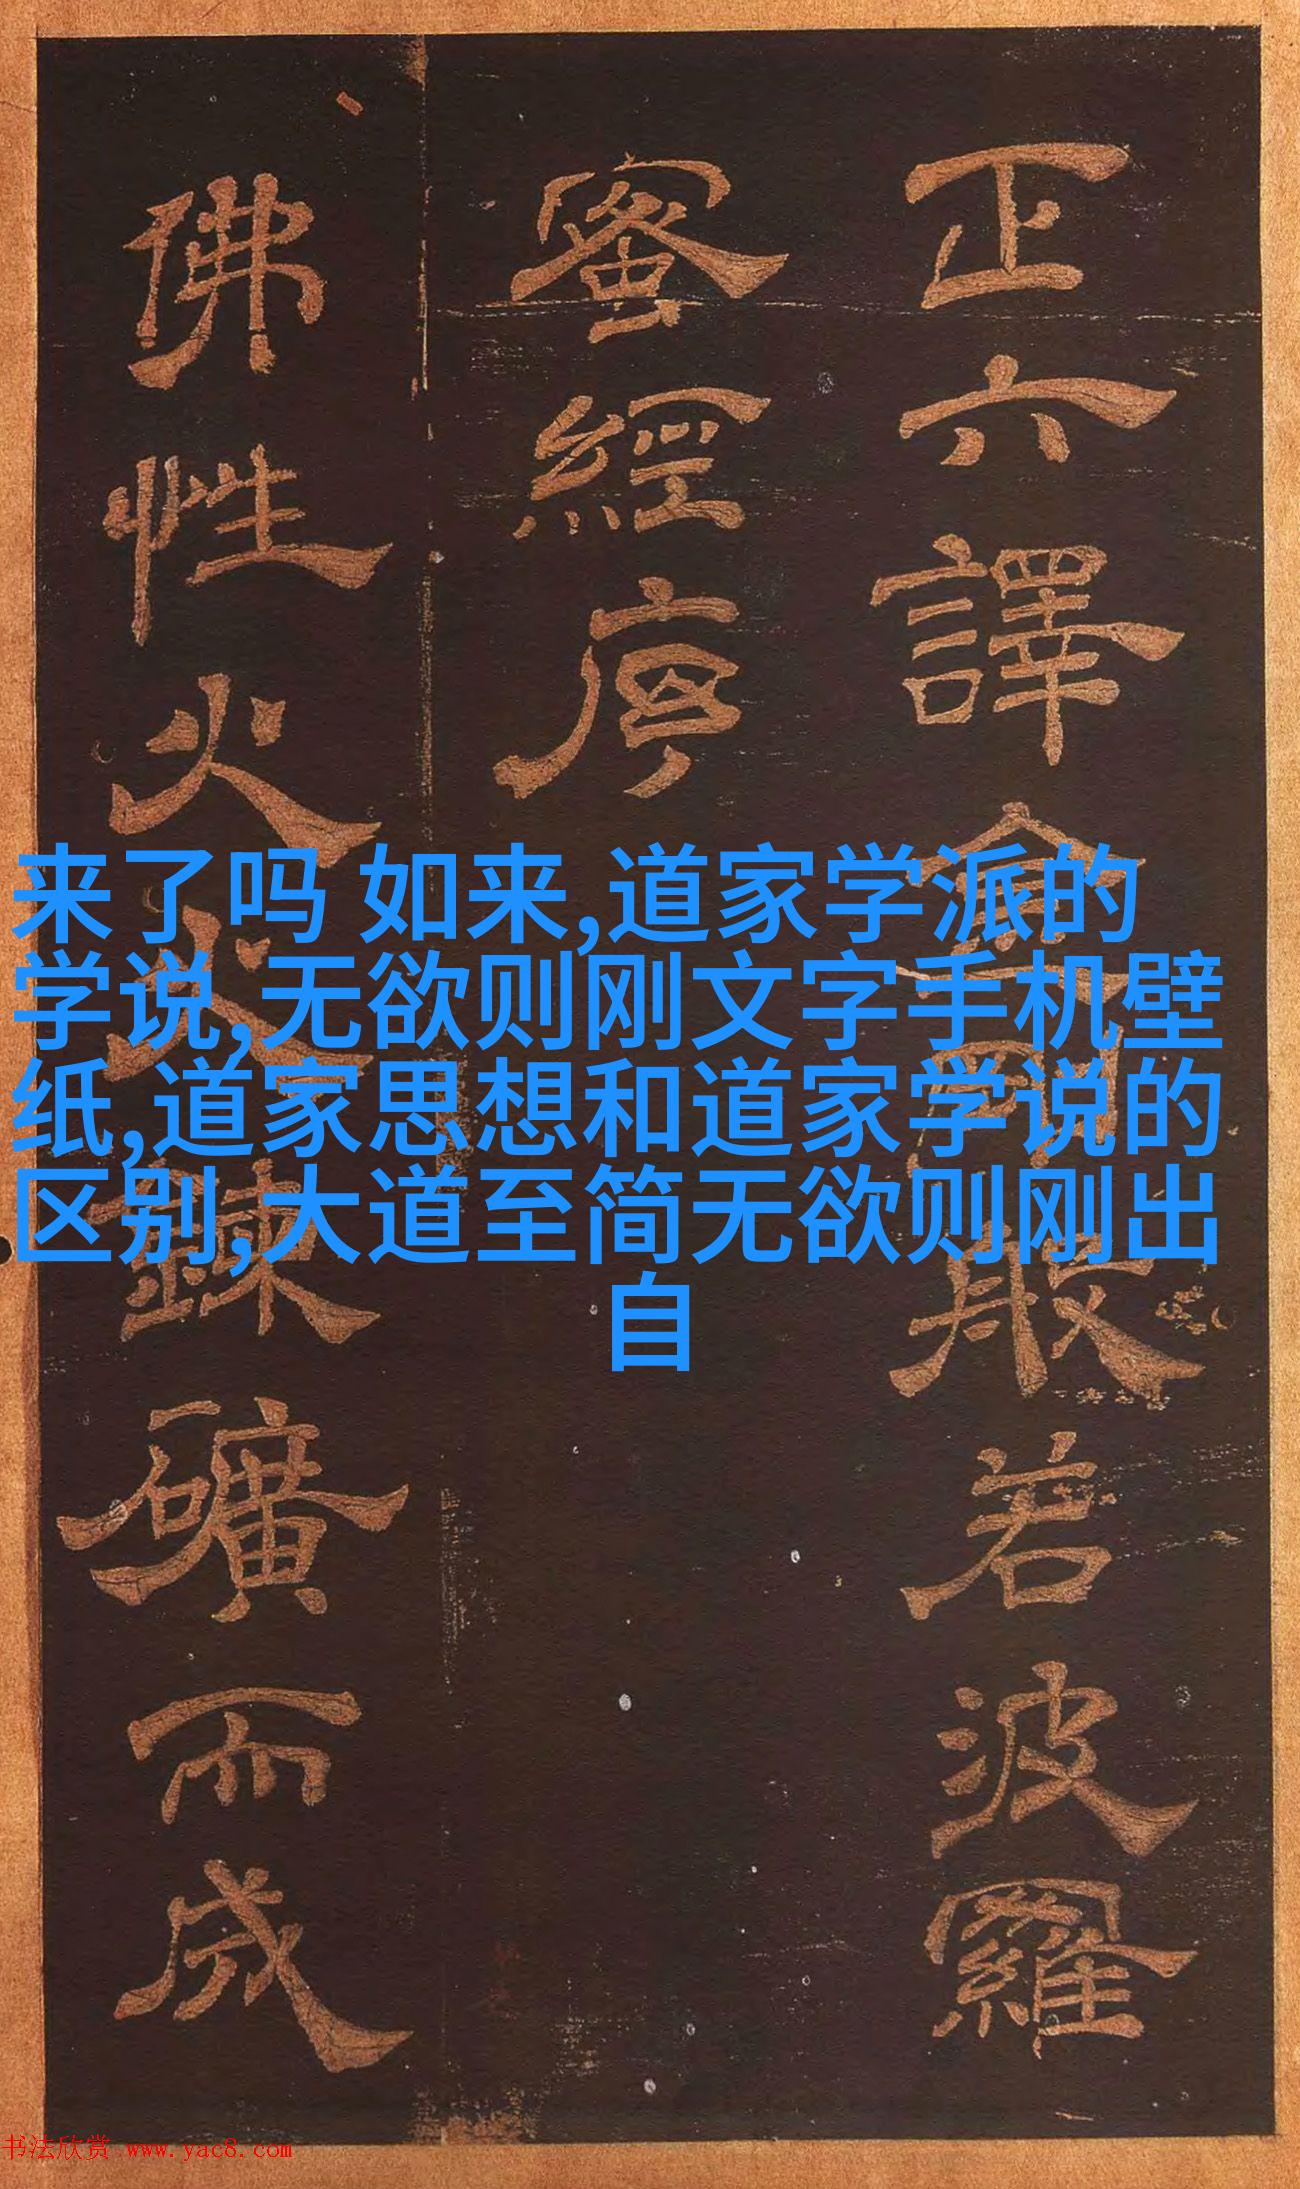 正六譯金剛般若波羅
蜜經序
佛性火火鍊礦而成
来了吗 如来,道家学派的
学说,无欲则刚文字手机壁
纸,道家思想和道家学说的
区别,大道至简无欲则刚出
自
书法欣赏 www.yac8.com